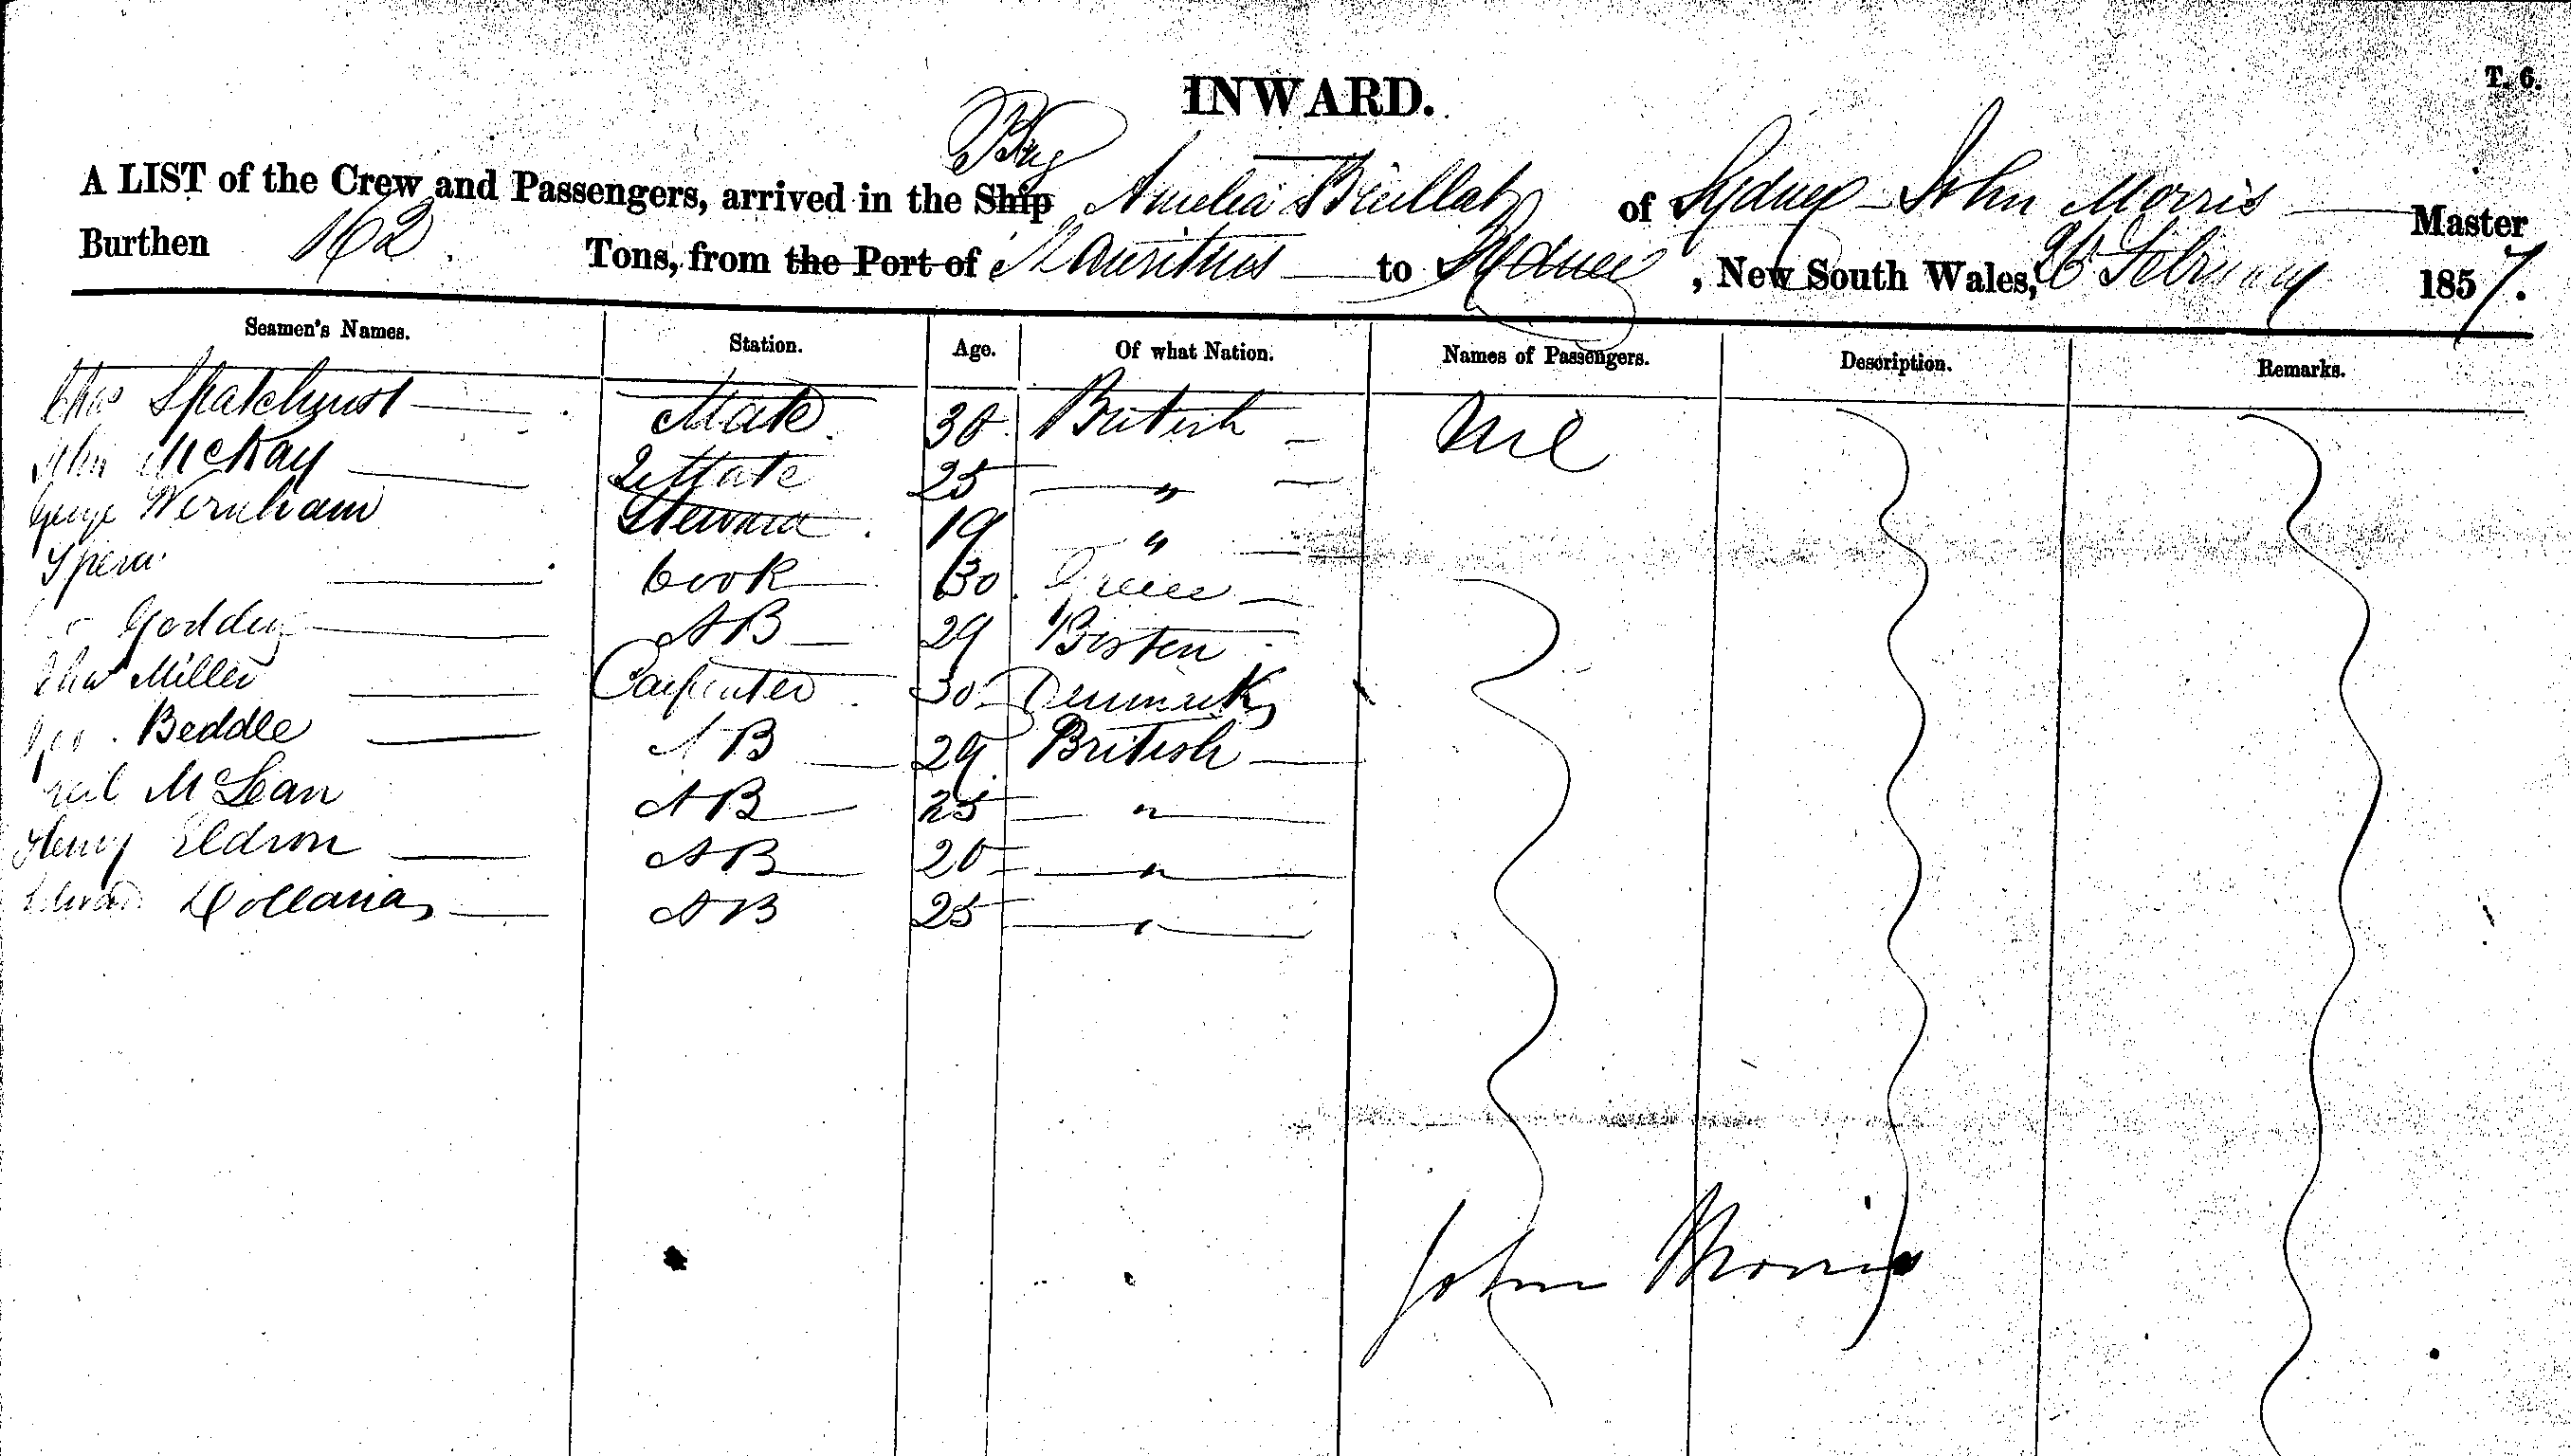 T. 6.
INWARD.
Brig
A LIST of the Crew and Passengers, arrived in the Ship Amelia Breillat of Sydney John Morris Master
Burthen 162 Tons, from the Port of Mauritius to Sydney, New South Wales, 26 February 1857.
Seamen's Names. Station. Age. Of what Nation. Names of Passengers. Description. Remarks.
Chas Spatchurst Mate 30 British Nil
John McKay 2 Mate 25 "
George Wernham Steward 19 "
Cook 30 Greece
AB 29 Boston
Chas Miller Carpenter 30 Denmark
Geo. Beddle AB 29 British
Neil McLean AB 25 "
Henry Eldson AB 20 "
Edward AB 25 "
John Morris